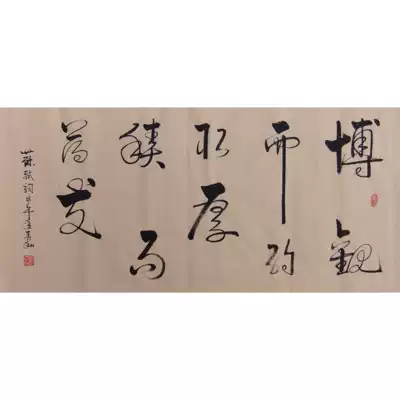 博觀
而約
取厚
積而
薄發
蘇軾詞